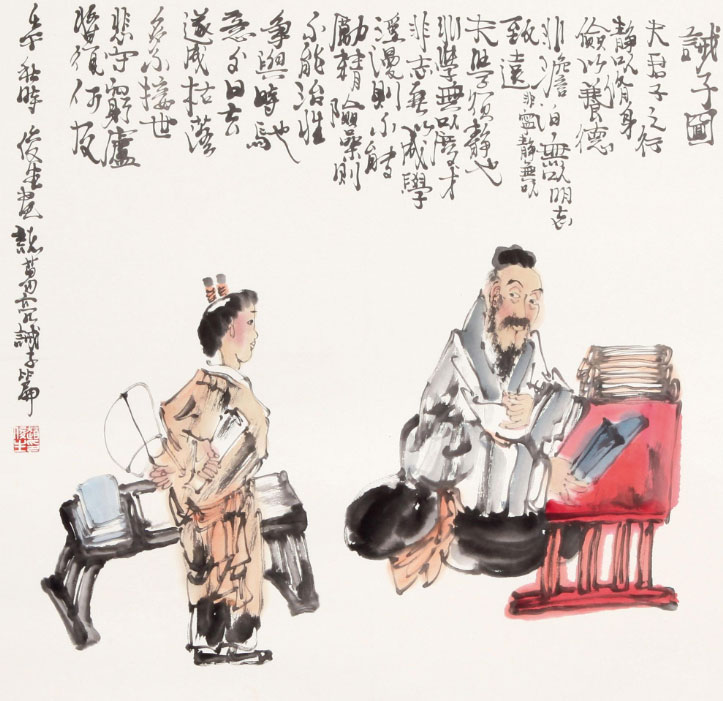 誡子圖
夫君子之行
静以脩身
儉以養德
非澹泊無以明志
非寧静無以
致遠
夫學須静也
非學無以廣才
非志無以成學
淫漫則不能
勵精險躁則
不能治性
爭與時馳
意与日去
遂成枯落
多不接世
悲守窮廬
將復何及
秋時 俊生畫 諸葛亮誡子篇